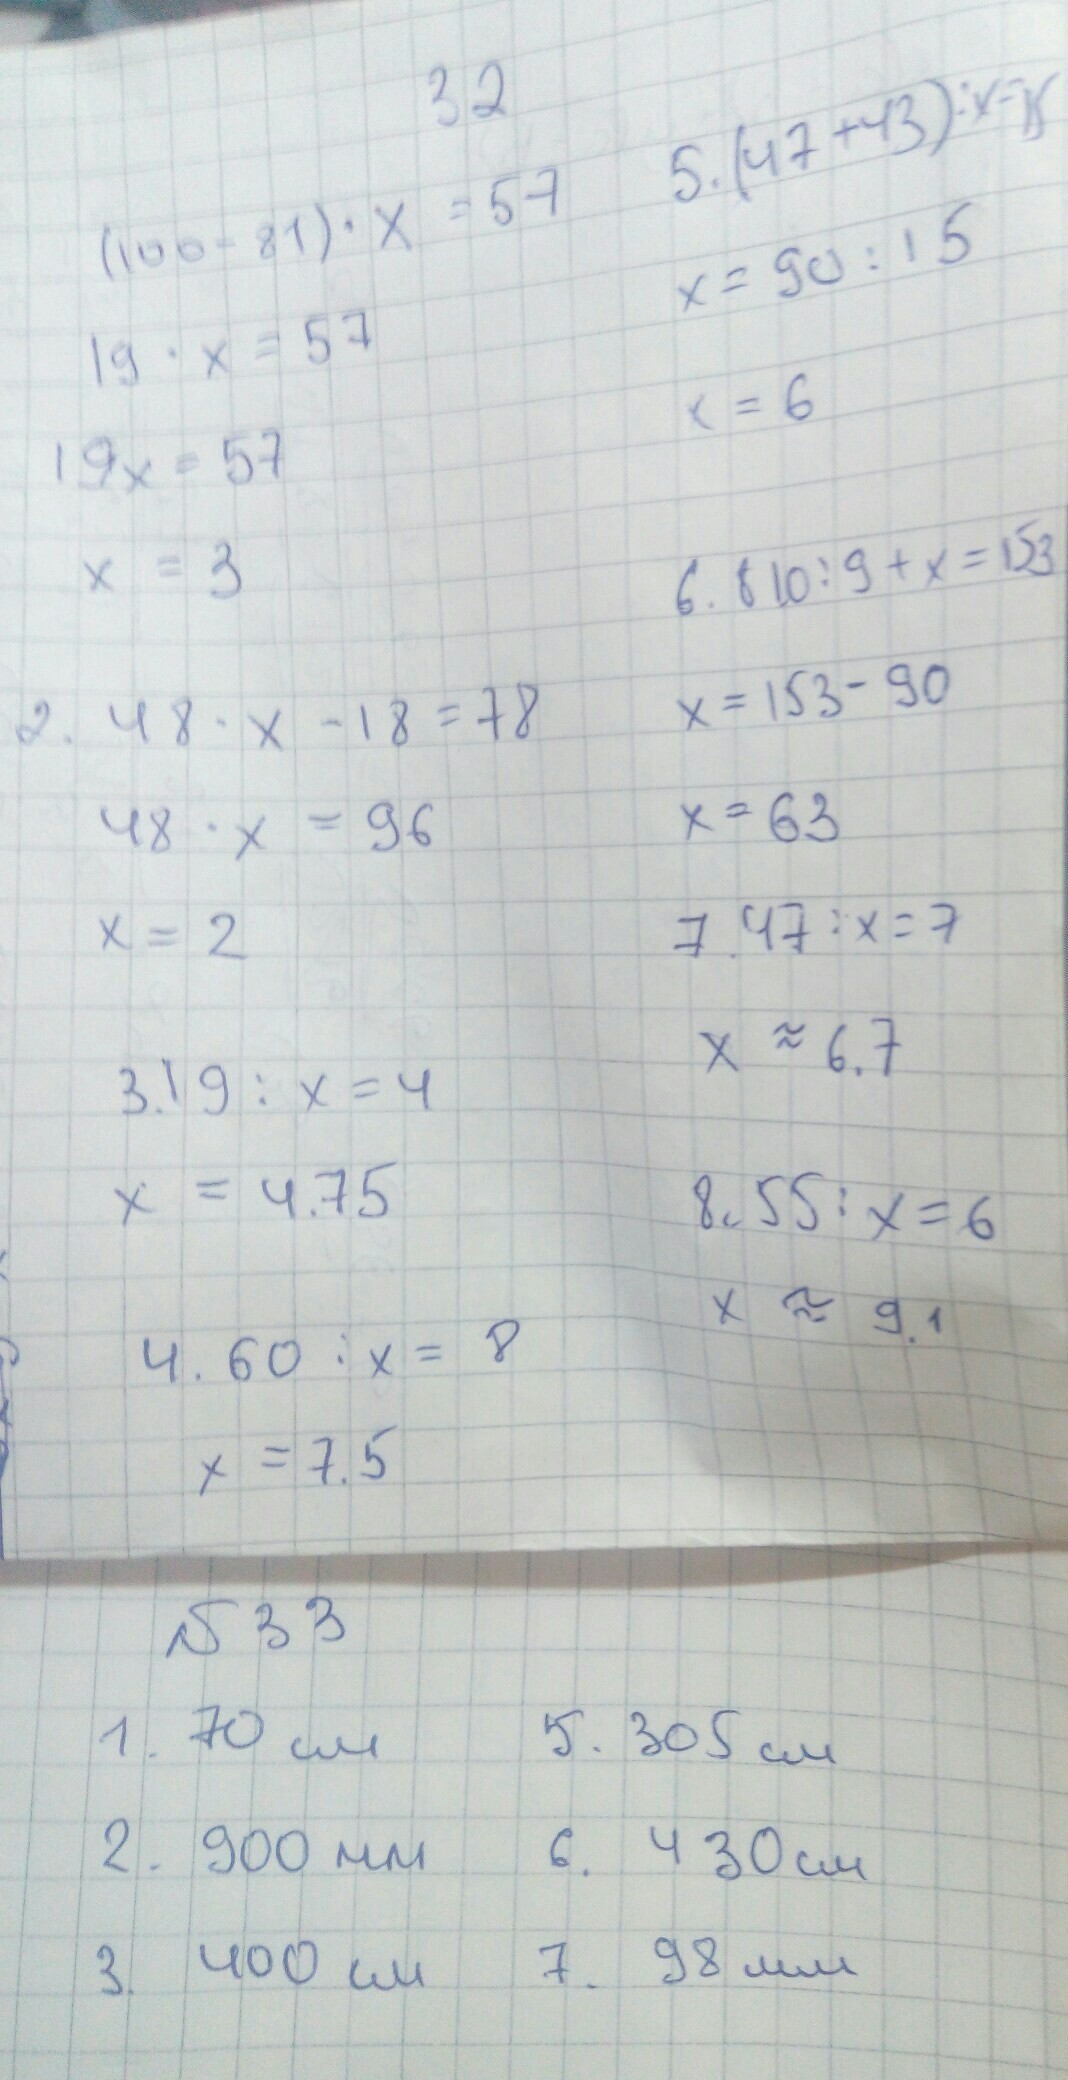 32
(100 - 81) · x = 57
19 · x = 57
19x = 57
x = 3
2. 48 · x - 18 = 78
48 · x = 96
x = 2
3. 19 : x = 4
x = 4.75
4. 60 : x = 8
x = 7.5
5. (47 + 43) : x = 15
x = 90 : 15
x = 6
6. 810 : 9 + x = 153
x = 153 - 90
x = 63
7. 47 : x = 7
x ≈ 6.7
8. 55 : x = 6
x ≈ 9.1
№33
1. 70 см
2. 900 мм
3. 400 см
5. 305 см
6. 430 см
7. 98 мм